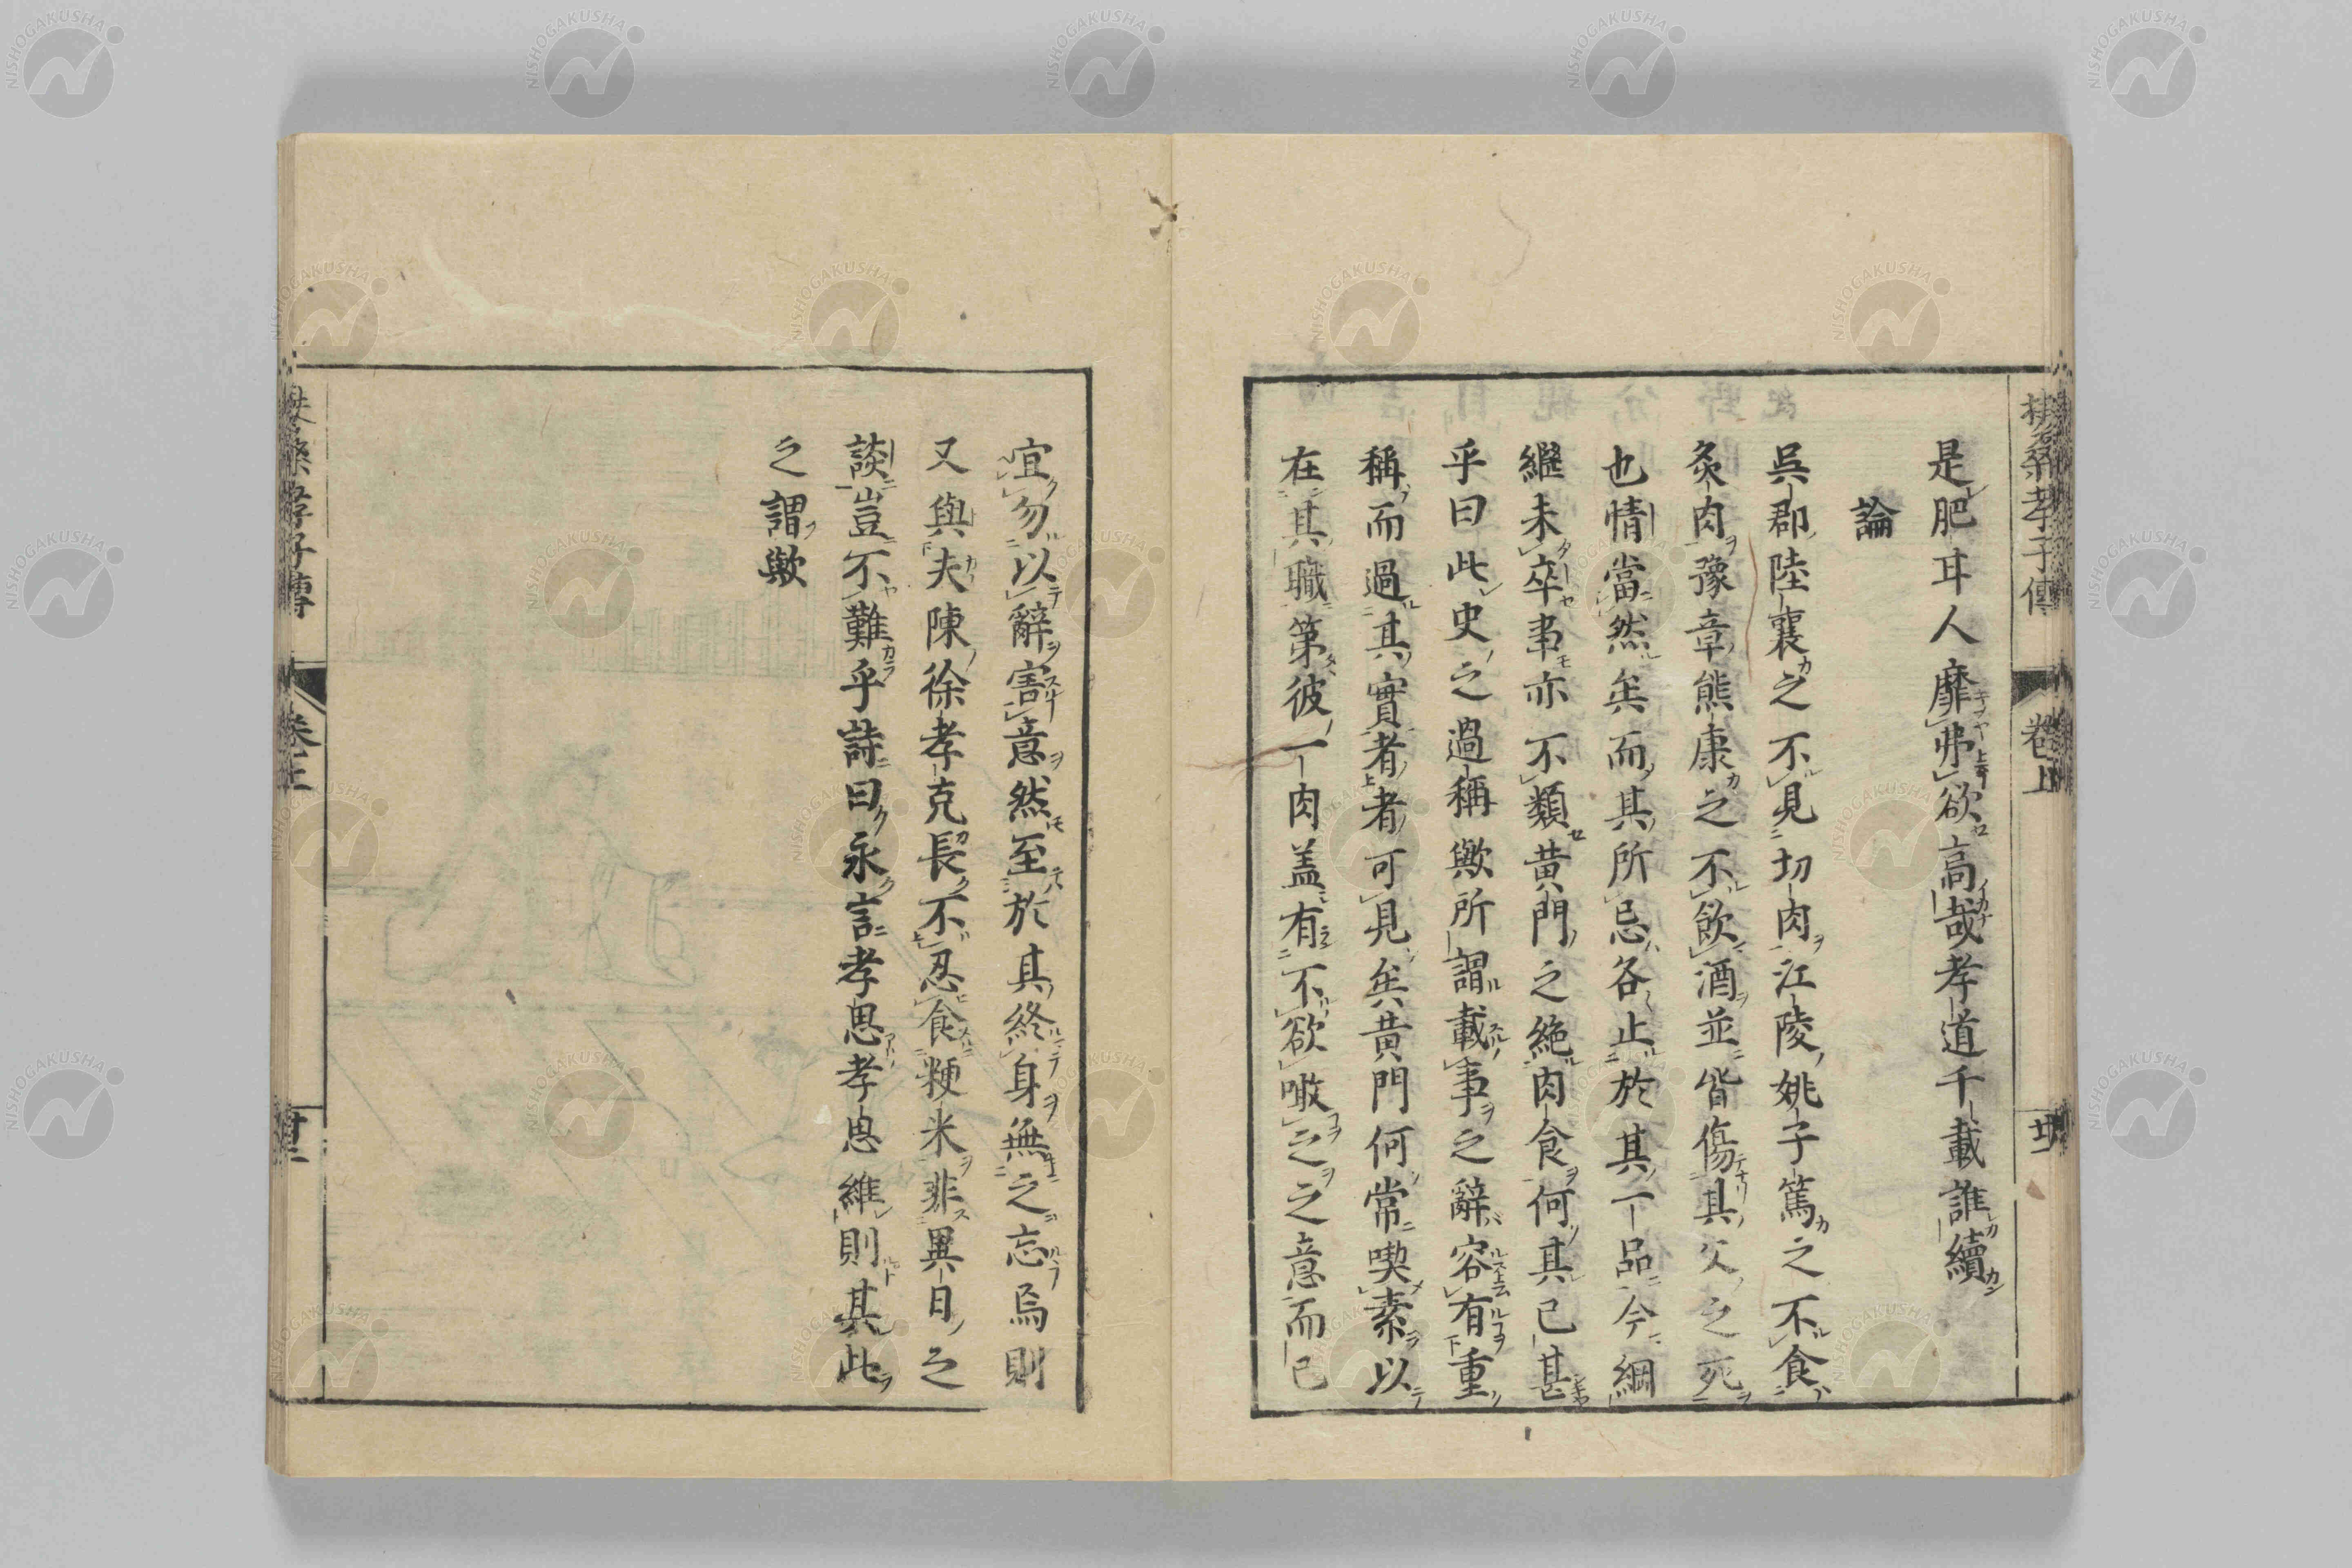 扶桑孝子傳 卷上 廿
是肥耳人靡弗欲高哉孝道千載誰續
論
吳郡陸襄之不見切肉江陵姚子篤之不食
炙肉豫章熊康之不飲酒並皆傷其父之死
也情當然矣而其所忌各止於其一品今綱
繼未卒事亦不類黃門之絶肉食何其已甚
乎曰此史之過稱歟所謂載事之辭容有重
稱而過其實者者可見矣黃門何常喫素以
在其職第彼一肉盖有不欲噉之之意而已
宜勿以辭害意然至於其終身無之忘焉則
又與夫陳徐孝克長不忍食粳米非異日之
談豈不難乎詩曰永言孝思孝思維則其此
之謂歟
扶桑孝子傳 卷上
NISHOGAKUSHA